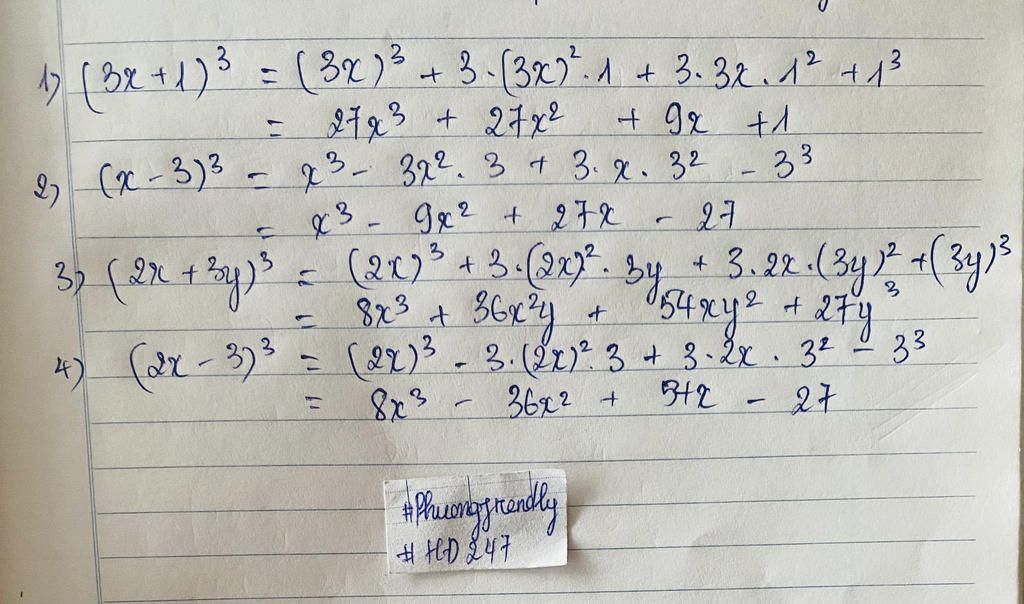 1) (3x+1)³ = (3x)³ + 3·(3x)²·1 + 3·3x·1² + 1³
= 27x³ + 27x² + 9x + 1
2) (x-3)³ = x³ - 3x²·3 + 3·x·3² - 3³
= x³ - 9x² + 27x - 27
3) (2x+3y)³ = (2x)³ + 3·(2x)²·3y + 3·2x·(3y)² + (3y)³
= 8x³ + 36x²y + 54xy² + 27y³
4) (2x-3)³ = (2x)³ - 3·(2x)²·3 + 3·2x·3² - 3³
= 8x³ - 36x² + 54x - 27
#Phuongfrendly
#HD247